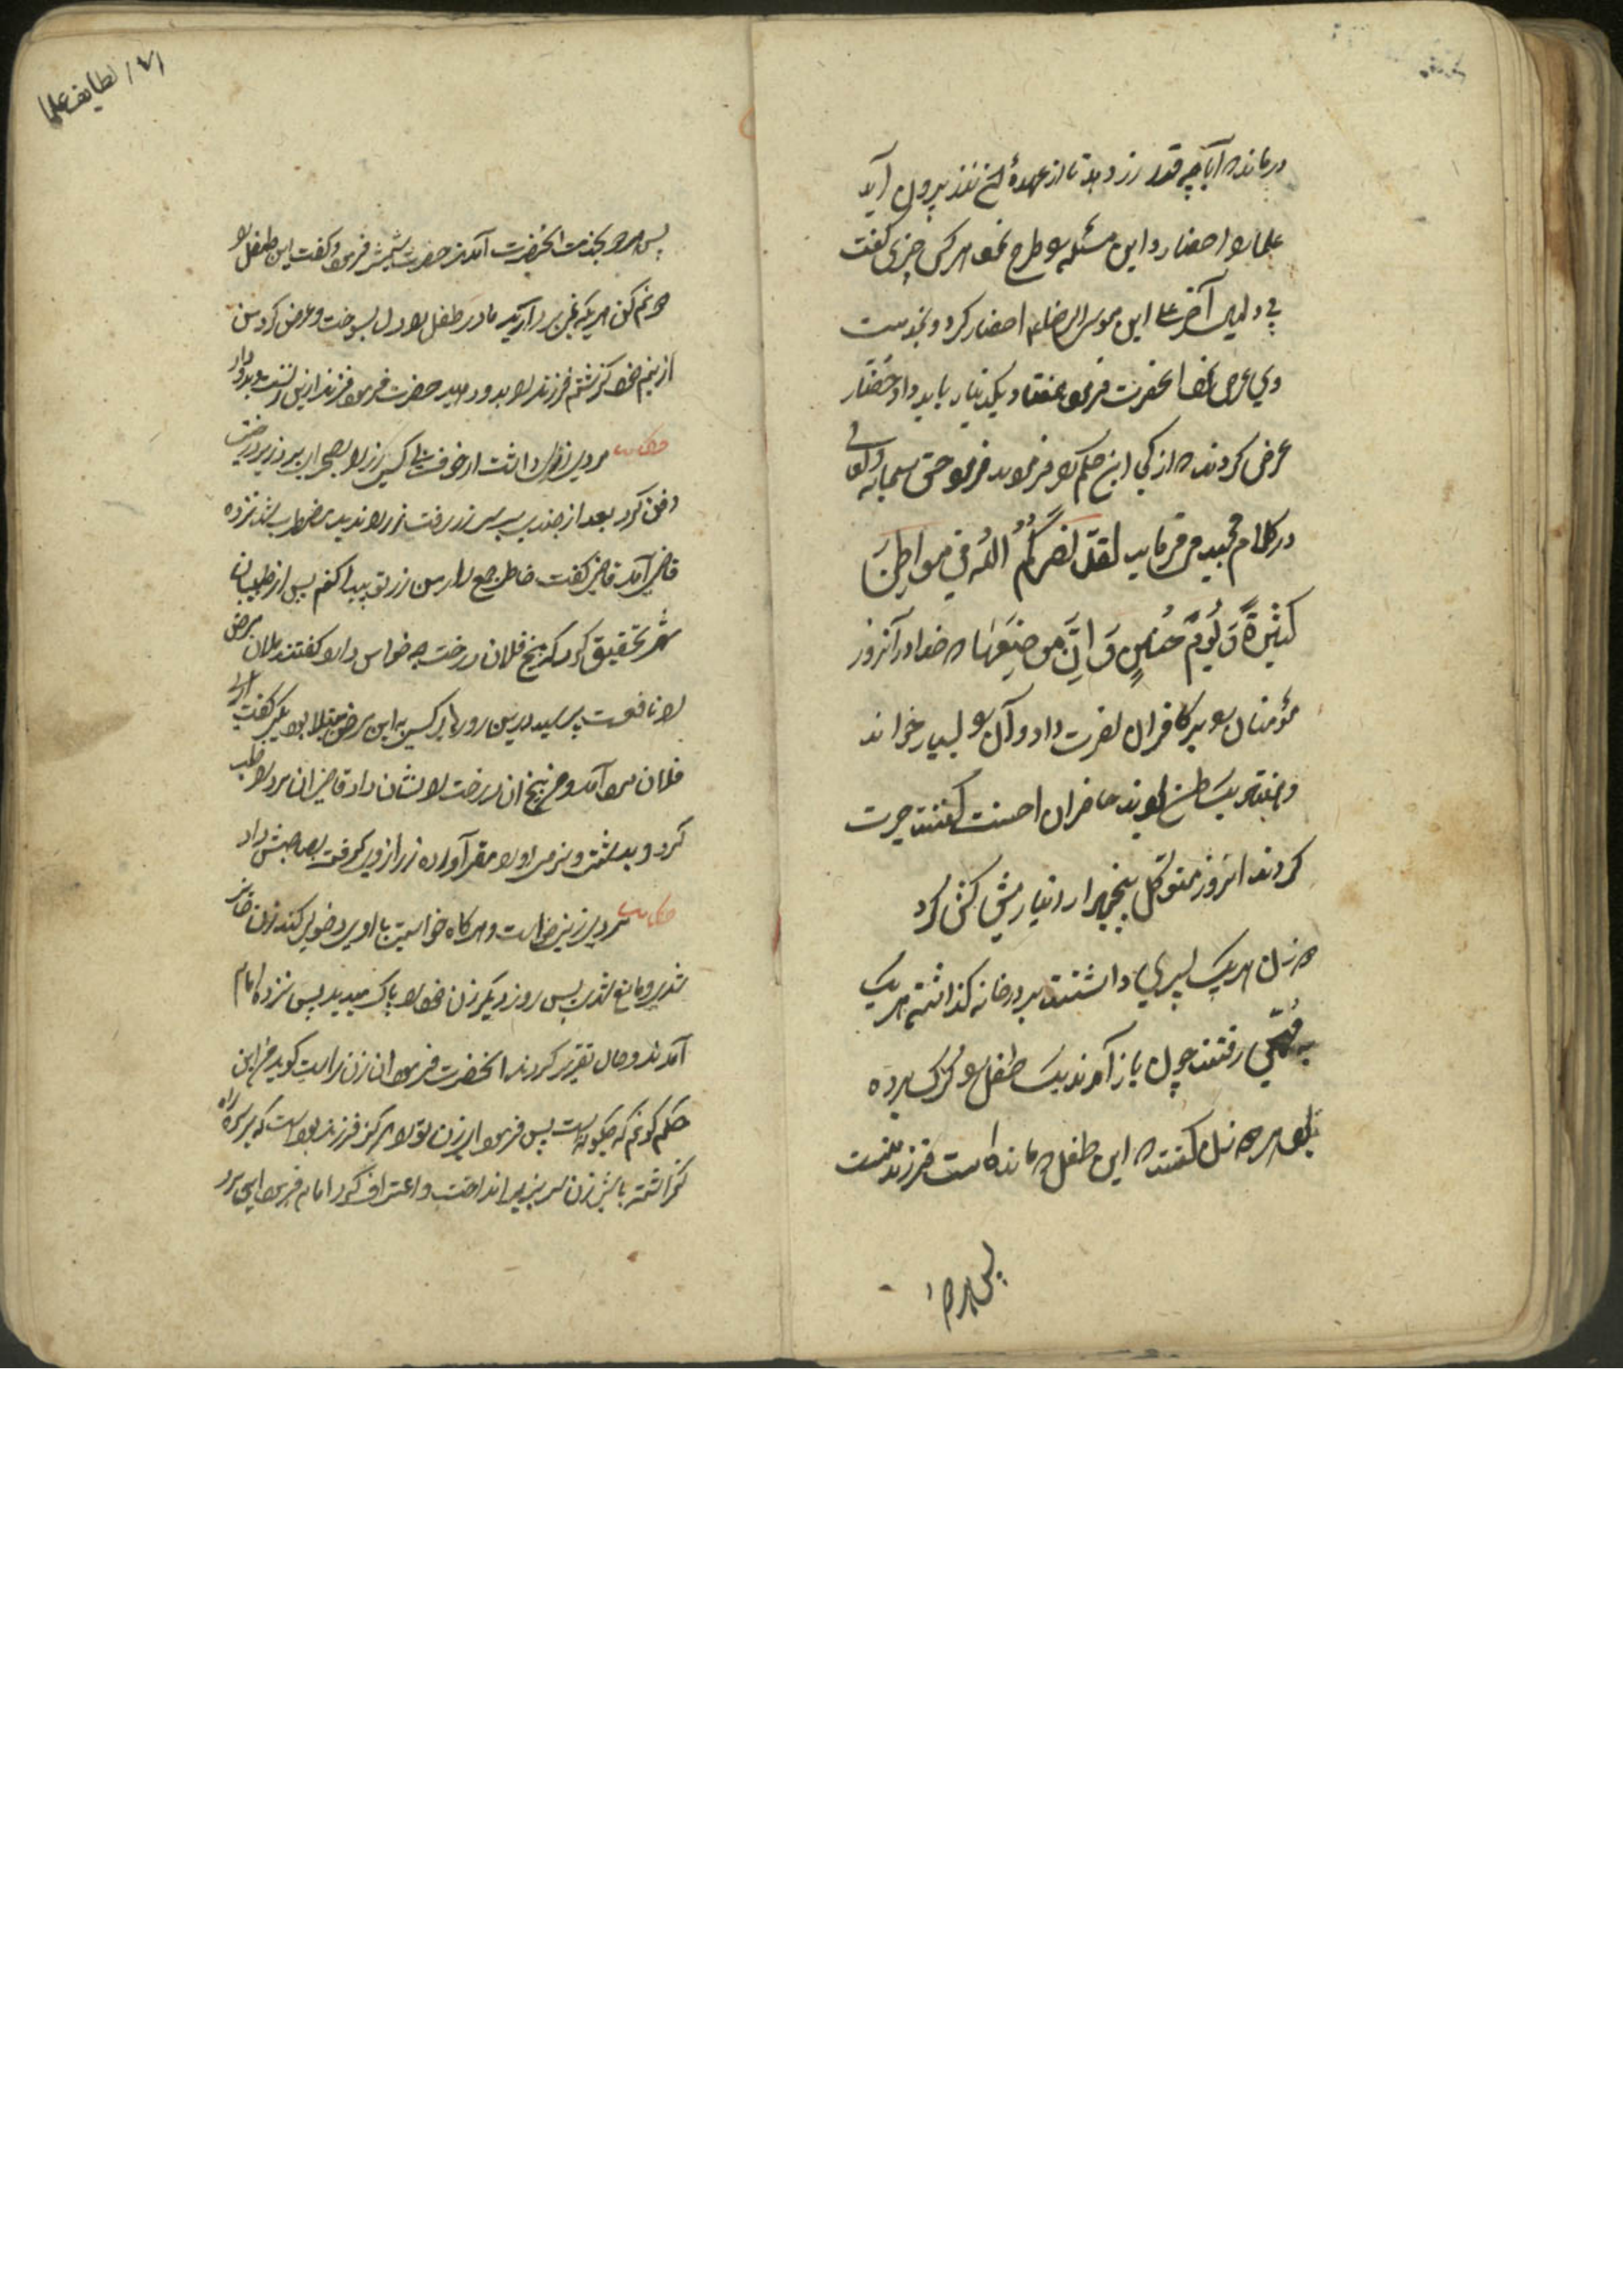 درمانده آیا چه قدر زر دهد تا از عهدهٔ نذر بیرون آید
علما را احضار و این مسئله را طرح نمود هر کس چیزی گفت
بی دلیل آخر علی ابن موسی الرضا را احضار کرد و بخدمت
وی عرض نمود آنحضرت فرمود هفتاد و یکدینار باید داد حضار
عرض کردند که از کی این حکم را فرمودید فرمود حق سبحانه و تعالی
در کلام مجید می فرماید لَقَدْ نَصَرَكُمُ اللهُ فِي مَوَاطِنَ
كَثِيرَةٍ وَيَوْمَ حُنَيْنٍ که خدا در آنروز
مؤمنان را بر کافران نصرت داد و آن را بسیار خواند
حاضران احسنت گفتند حیرت
کردند آنروز متوکل پنجهزار دینار پیش کش کرد
دو زن هر یک پسری داشتند بر در خانه گذاشته هر یک
به رفتند چون باز آمدند یک طفل را گرگ برده
بود هر دو زن گفتند که این طفل که مانده است فرزند منست
پس هر دو
۱۷۱ لطایف علما
پس هر دو بخدمت آنحضرت آمدند حضرت شمشیر فرمود و گفت این طفل را
دو نیم کن هر یک نیمی بردارید مادر طفل را دل بسوخت و عرض کرد من
از نیم خود گذشتم فرزند را بدو دهید حضرت فرمود فرزند از این زنست بدو داد
حکایت مردی زر داشت از خوف بی کسی زر را بصحرا برد و زیر درخت
دفن کرد بعد از چندی بر سر زر رفت زر را ندید مضطرب شد نزد
قاضی آمد قاضی گفت خاطر جمع دار من زر تو پیدا کنم پس از طبیبان
شهر تحقیق کرد که بیخ فلان درخت چه خواص دارد گفتند فلان مرض
را نافعست پرسید درین روزها کسی به این مرض مبتلا بود یکی گفت آری
فلان مرد آمد و من بیخ آن درخت را نشان دادم قاضی آن مرد را طلب
کرد و بدرشتی و نرمی او را مقر آورده زر از وی گرفت بصاحبش داد
حکایت مردی زنی خواست و هر گاه خواستی با او بر دخولی کند زن حایض
شدی و مانع شدی پس روز دیگر زن خود را پاک میدید پس نزد امام
آمدند و حال تقریر کردند آنحضرت فرمود آن زن راست گوید من این
حکم کنم که چگونه است پس فرمود ای زن تو را هرگز فرزند بوده است که بر سر راه
گذاشته باشی زن سر بزیر انداخت و اعتراف کرد امام فرمود این مرد